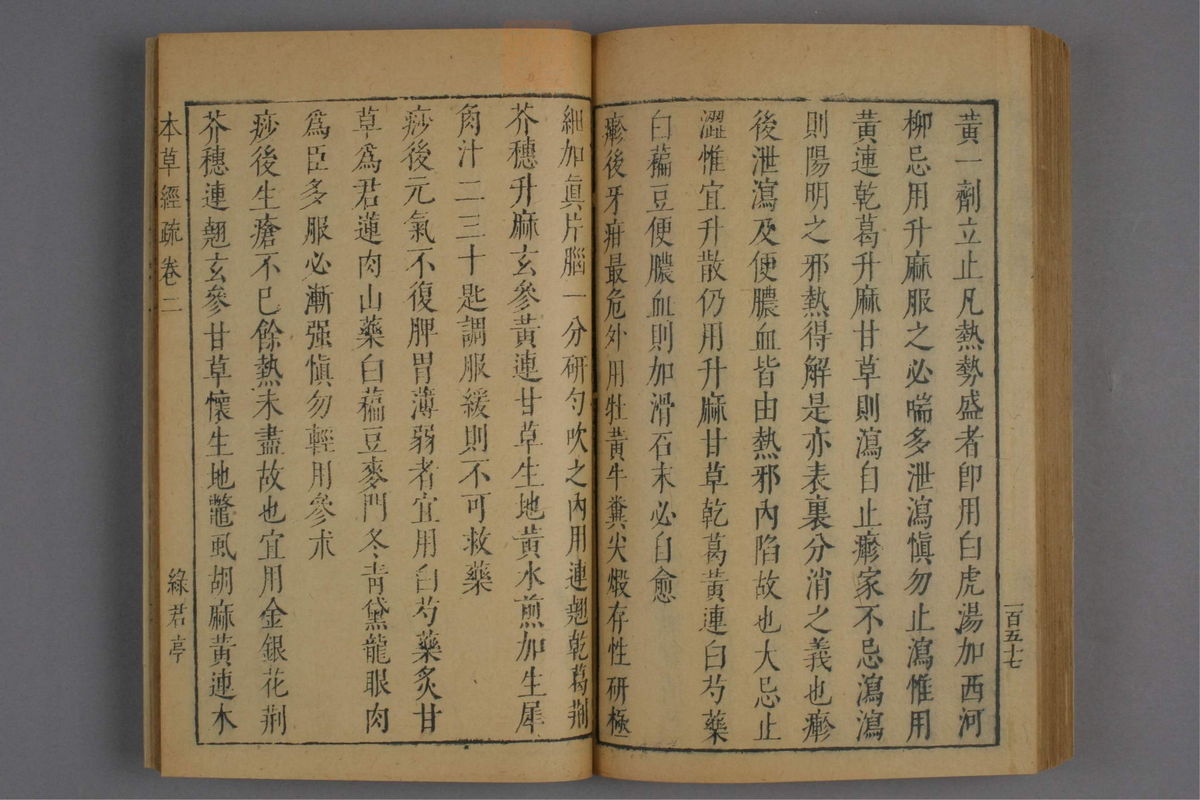 黃一劑立止凡熱勢盛者卽用白虎湯加西河
柳忌用升麻服之必喘多泄瀉愼勿止瀉惟用
黃連乾葛升麻甘草則瀉自止瘮家不忌瀉瀉
則陽明之邪熱得解是亦表裏分消之義也瘮
後泄瀉及便膿血皆由熱邪內陷故也大忌止
澀惟宜升散仍用升麻甘草乾葛黃連白芍藥
白藊豆便膿血則加滑石末必自愈
瘮後牙疳最危外用牡黃牛糞尖煅存性研極
一百五十七
細加眞片腦一分研勻吹之內用連翹乾葛荆
芥穗升麻玄參黃連甘草生地黃水煎加生犀
角汁二三十匙調服緩則不可救藥
痧後元氣不復脾胃薄弱者宜用白芍藥炙甘
草爲君蓮肉山藥白藊豆麥門冬靑黛龍眼肉
爲臣多服必漸强愼勿輕用參朮
痧後生瘡不已餘熱未盡故也宜用金銀花荆
芥穗連翹玄參甘草懷生地鼈虱胡麻黃連木
本草經疏 卷二 綠君亭